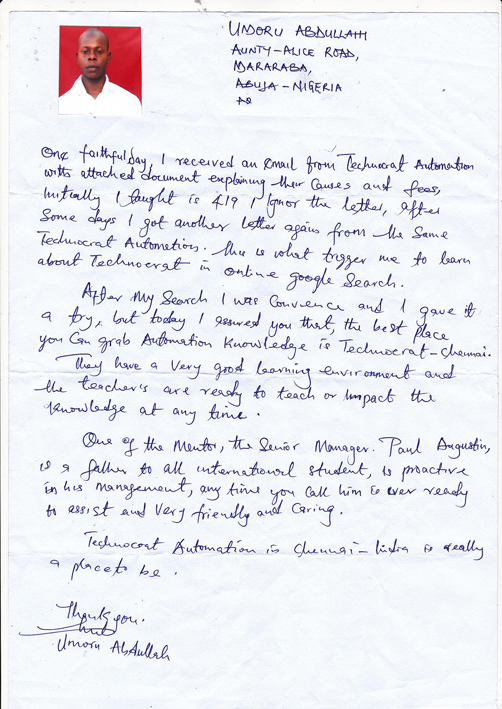 UMORU ABDULLAHI
AUNTY-ALICE ROAD,
MARARABA,
ABUJA - NIGERIA
One faithful day, I received an Email from Technocrat Automation
with attached document explaining their Causes and fees,
Initially I taught is 419 I Ignor the letter, After
Some days I got another letter again from the Same
Technocrat Automation. This is what trigger me to learn
about Technocrat in online google Search.
After My Search I was Convience and I gave it
a try, but today I assured you that, the best place
you Can grab Automation Knowledge is Technocrat-Chennai.
They have a Very good learning environment and
the teacher's are ready to teach or Impact the
Knowledge at any time.
One of the Mentor, the Senior Manager. Paul Augustin,
is a father to all international student, is proactive
in his management, any time you call him is ever ready
to assist and Very friendly and Caring.
Technocrat Automation in Chennai - India is really
a place to be.
Thank you.
Umoru Abdullah